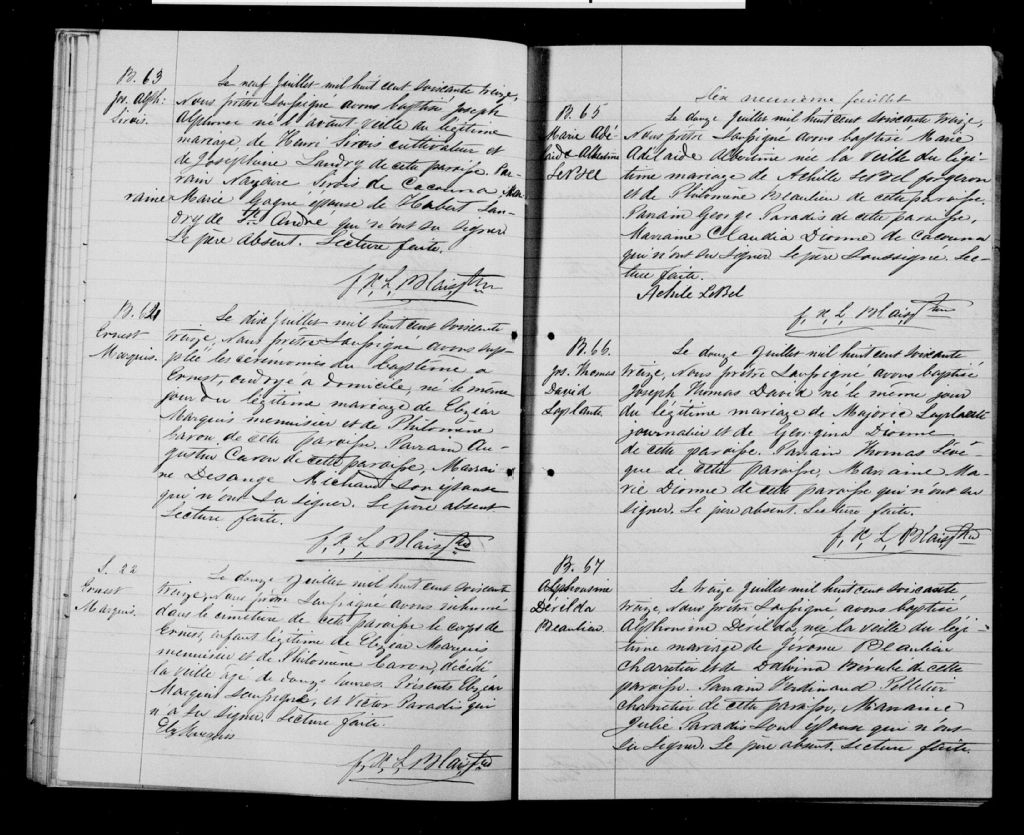 B. 63
Jos. Alph:
Sirois.
Le neuf Juillet mil huit cent soixante treize,
Nous prêtre soussigné avons baptisé Joseph
Alphonse né l'avant-veille du légitime
mariage de Henri Sirois cultivateur et
de Joséphine Landry de cette paroisse. Par-
rain Nazaire Sirois de Cacouna Mar-
raine Marie Gagné épouse de Hubert Lan-
dry de St. André qui n'ont su signer
Le père absent. Lecture faite.
f. X. L. Blais Ptre
B. 64
Ernest
Marquis.
Le dix Juillet mil huit cent soixante
treize, Nous prêtre soussigné avons sup-
pléé les cérémonies du baptême à
Ernest, ondoyé à domicile, né le même
jour du légitime mariage de Elzéar
Marquis menuisier et de Philomène
Caron, de cette paroisse. Parrain Au-
gustin Caron de cette paroisse, Marrai-
ne Desange Michaud son épouse
qui n'ont su signer. Le père absent
Lecture faite.
f. X. L. Blais Ptre
S. 22
Ernest
Marquis.
Le douze Juillet mil huit cent soixante
treize, Nous prêtre soussigné avons inhumé
dans le cimetière de cette paroisse le corps de
Ernest, enfant légitime de Elzéar Marquis
menuisier et de Philomène Caron, décédé
la veille âgé de douze heures. Présents Elzéar
Marquis soussigné, et Victor Paradis qui
n'a su signer. Lecture faite.
Elz Marquis
f. X. L. Blais Ptre
Dix neuvième feuillet
B. 65
Marie Adé-
laide Albertine
LeBel
Le douze Juillet mil huit cent soixante treize,
Nous prêtre soussigné avons baptisé Marie
Adelaide Albertine née la veille du légi-
time mariage de Achille LeBel forgeron
et de Philomène Beaulieu de cette paroisse.
Parrain George Paradis de cette paroisse,
Marraine Claudia Dionne de Cacouna
qui n'ont su signer Le père soussigné. Lec-
ture faite.
Achile LeBel
f. X. L. Blais Ptre
B. 66.
Jos. Thomas
David
Laplante
Le douze Juillet mil huit cent soixante
treize, Nous prêtre soussigné avons baptisé
Joseph Thomas David né le même jour
du légitime mariage de Majoric Laplante
journalier et de Georgina Dionne
de cette paroisse. Parrain Thomas Lévê-
que de cette paroisse, Marraine Ma-
rie Dionne de cette paroisse qui n'ont su
signer. Le père absent. Lecture faite.
f. X. L. Blais Ptre
B. 67
Alphonsine
Dérilda
Beaulieu
Le treize Juillet mil huit cent soixante
treize, Nous prêtre soussigné avons baptisé
Alphonsine Derilda, née la veille du légi-
time mariage de Jérôme Beaulieu
charretier et de Dalvina Bérubé de cette
paroisse. Parrain Ferdinand Pelletier
charretier de cette paroisse, Marraine
Julie Paradis son épouse qui n'ont
su signer. Le père absent. Lecture faite.